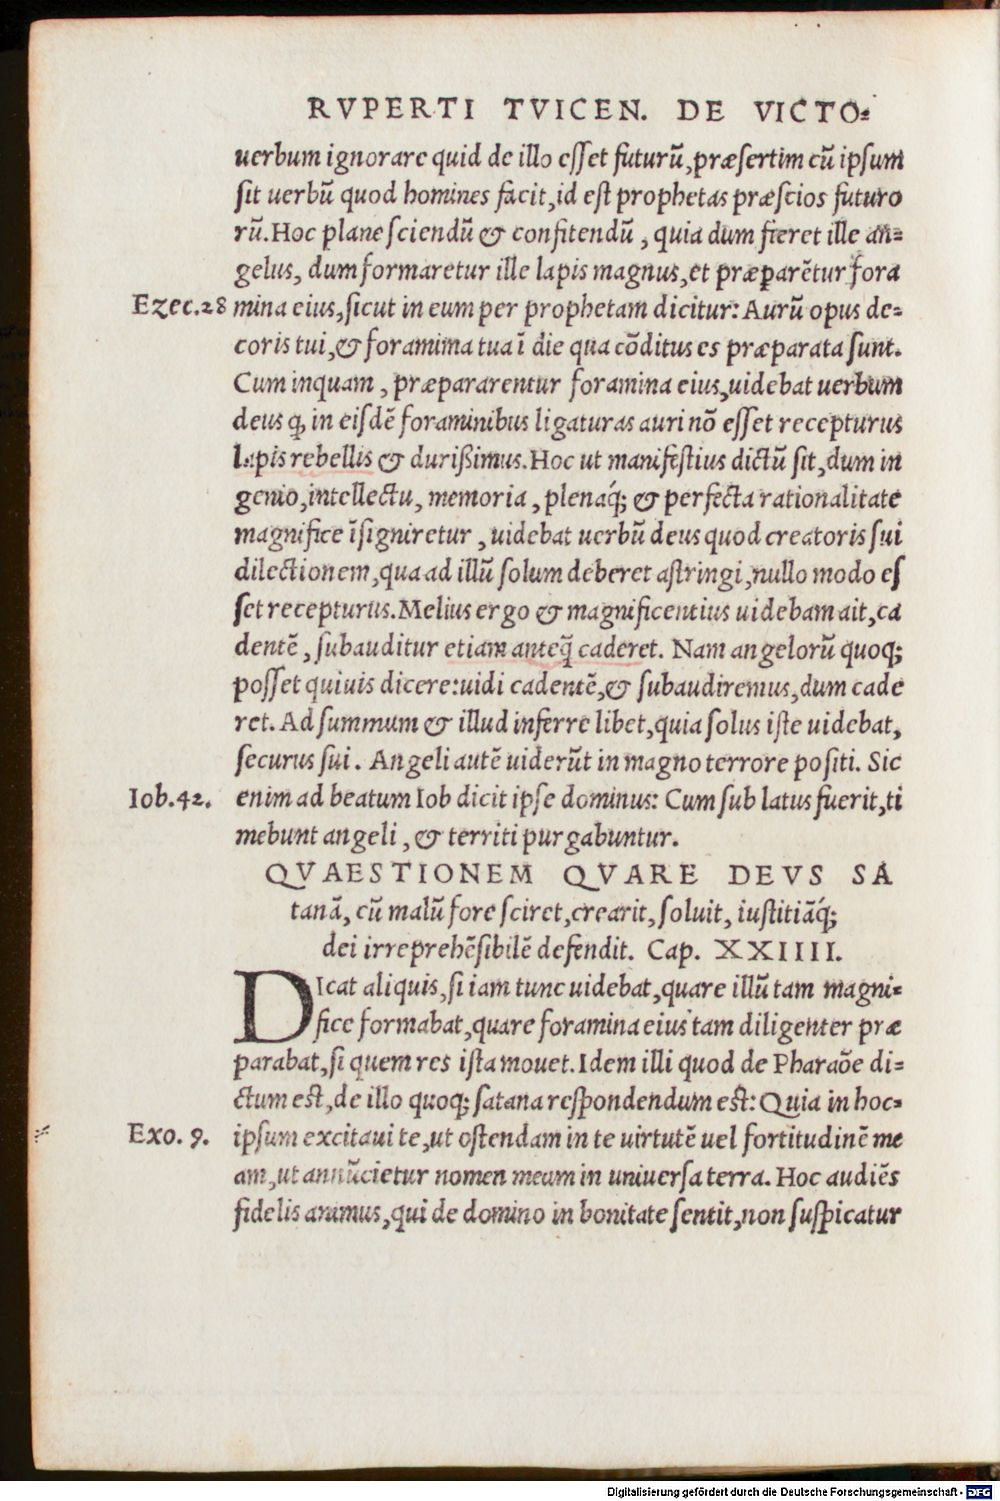 RVPERTI TVICEN. DE VICTO-
uerbum ignorare quid de illo esset futurũ, præsertim cũ ipsum
sit uerbũ quod homines facit, id est prophetas præscios futuro
rũ. Hoc plane sciendũ & confitendũ, quia dum fieret ille an-
gelus, dum formaretur ille lapis magnus, et præparẽtur fora
Ezec.28 mina eius, sicut in eum per prophetam dicitur: Aurũ opus de-
coris tui, & foramima tua ĩ die qua cõditus es præparata sunt.
Cum inquam, præpararentur foramina eius, uidebat uerbum
deus ꝙ in eisdẽ foraminibus ligaturas auri nõ esset recepturus
lapis rebellis & durißimus. Hoc ut manifestius dictũ sit, dum in
genio, intellectu, memoria, plenaq́; & perfecta rationalitate
magnifice ĩsigniretur, uidebat uerbũ deus quod creatoris sui
dilectionem, qua ad illũ solum deberet astringi, nullo modo es
set recepturus. Melius ergo & magnificentius uidebam ait, ca
dentẽ, subauditur etiam anteq̃ caderet. Nam angelorũ quoq;
posset quiuis dicere: uidi cadentẽ, & subaudiremus, dum cade
ret. Ad summum & illud inferre libet, quia solus iste uidebat,
securus sui. Angeli autẽ uiderũt in magno terrore positi. Sic
Iob.42. enim ad beatum Iob dicit ipse dominus: Cum sublatus fuerit, ti
mebunt angeli, & territi purgabuntur.
QVAESTIONEM QVARE DEVS SA
tanã, cũ malũ fore sciret, crearit, soluit, iustitiãq́;
dei irreprehẽsibilẽ defendit. Cap. XXIIII.
DIcat aliquis, si iam tunc uidebat, quare illũ tam magni-
fice formabat, quare foramina eius tam diligenter præ
parabat, si quem res ista mouet. Idem illi quod de Pharaõe di-
ctum est, de illo quoq; satana respondendum est: Quia in hoc-
Exo. 9. ipsum excitaui te, ut ostendam in te uirtutẽ uel fortitudinẽ me
am, ut annũcietur nomen meum in uniuersa terra. Hoc audiẽs
fidelis animus, qui de domino in bonitate sentit, non suspicatur
Digitalisierung gefördert durch die Deutsche Forschungsgemeinschaft - DFG